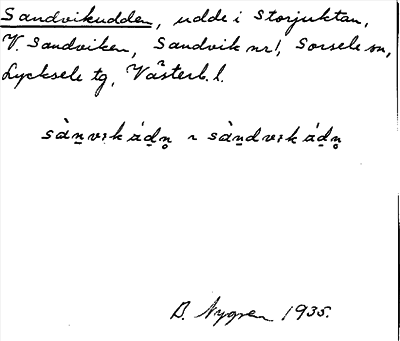 Sandvikudden, udde i Storjuktan,
V. Sandviken, Sandvik nr 1, Sorsele sn,
Lycksele tg, Västerb. l.
sànvɩkád̲n̥ ~ sàn̲dvɩkád̲n̥
B. Nygren 1935.